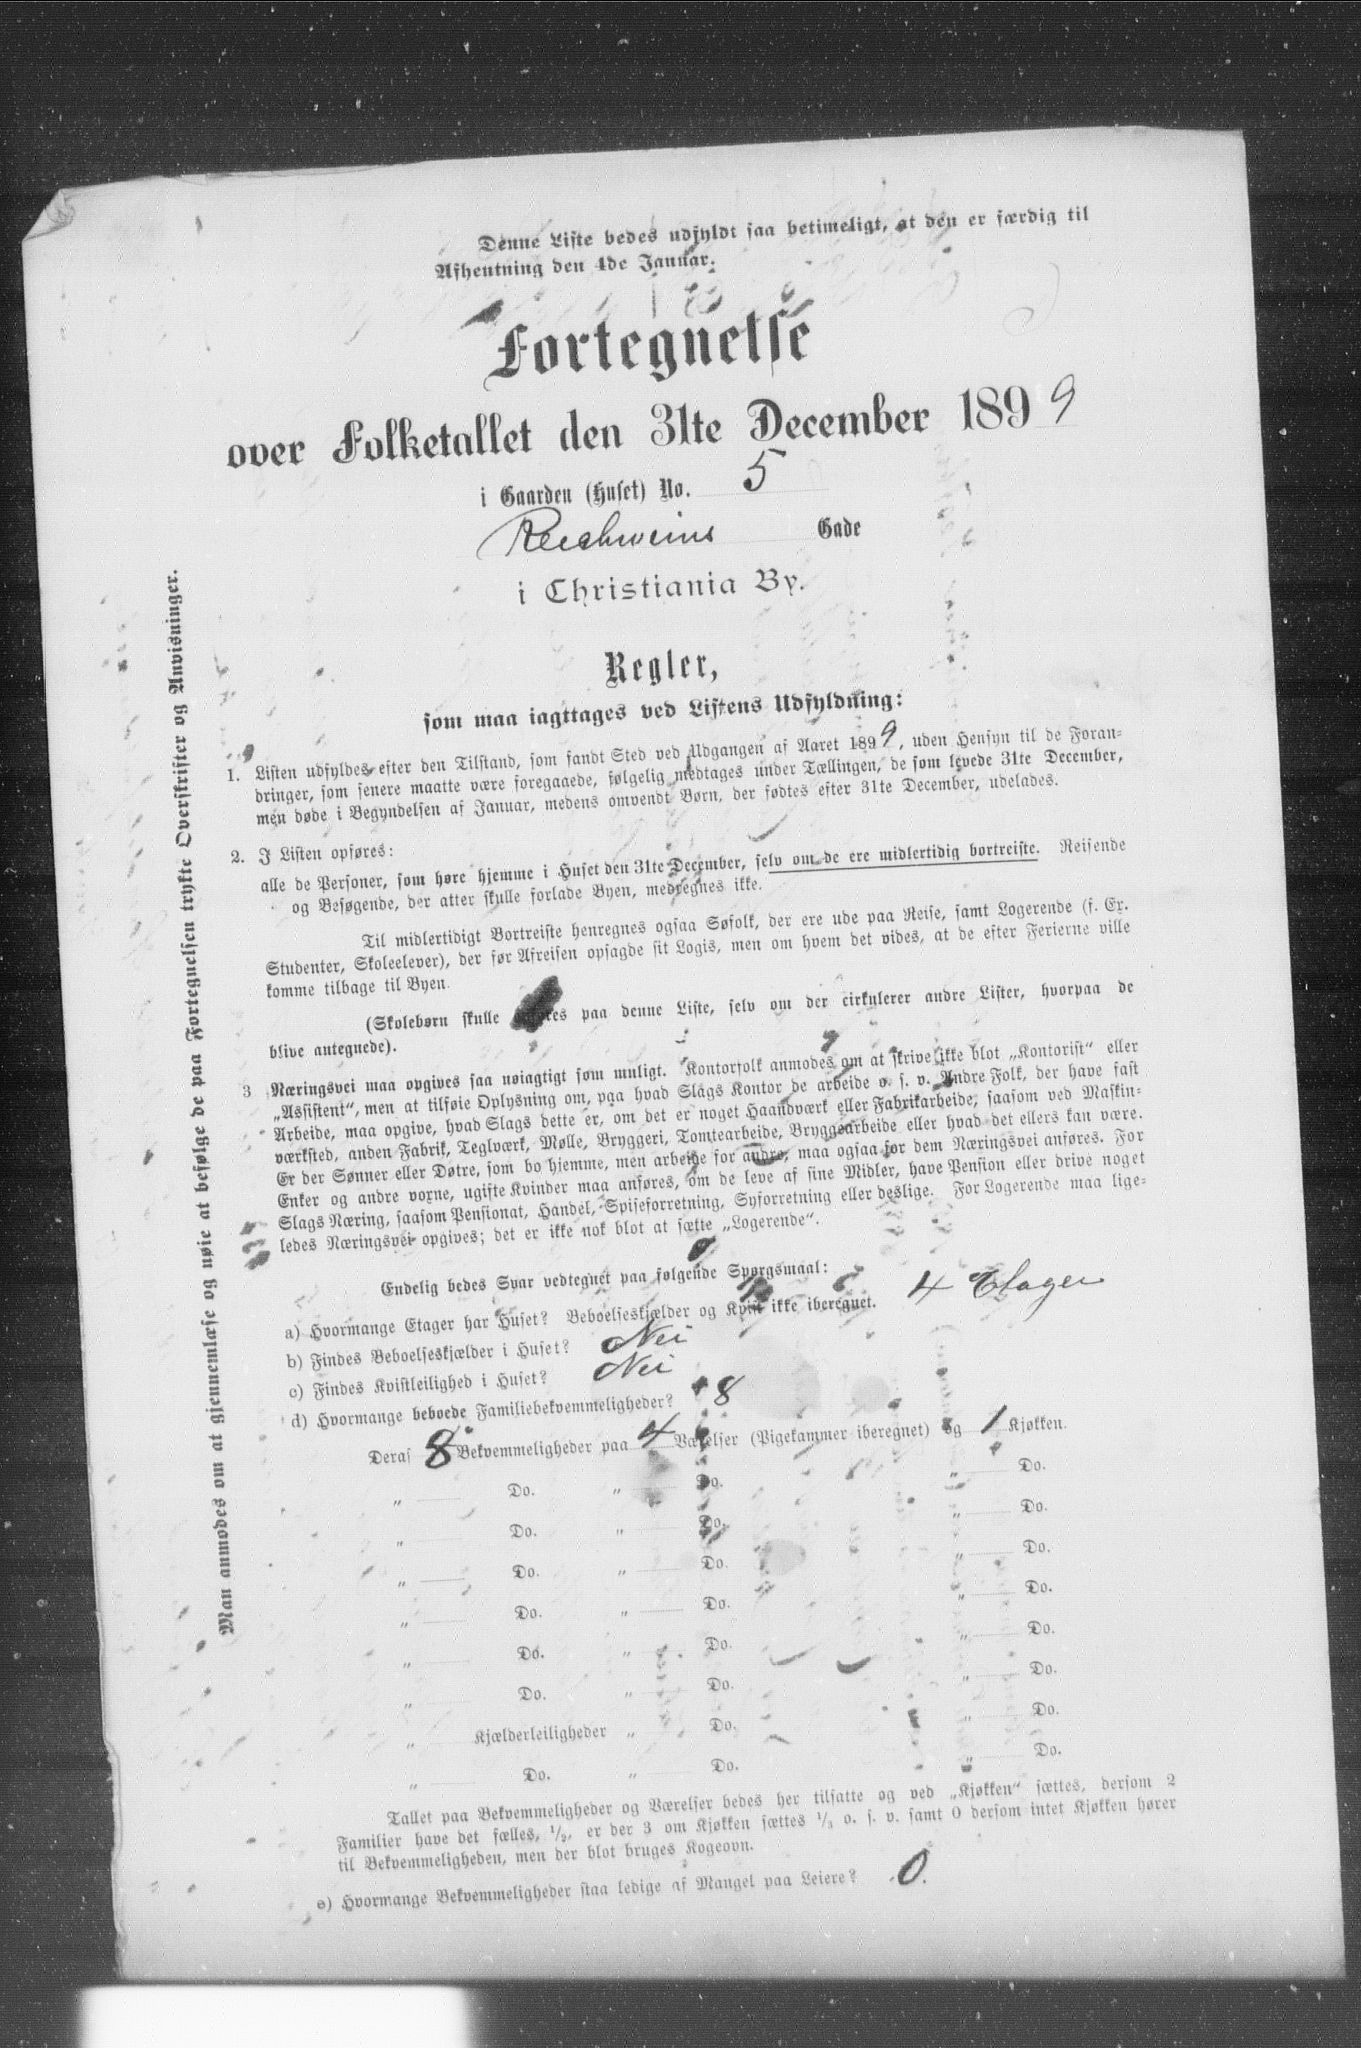 Denne Liste bedes udfyldt saa betimeligt, at den er færdig til
Afhentning den 4de Januar.
Fortegnelse
over Folketallet den 31te December 1899
i Gaarden (Huset) No. 5
Reichweins Gade
i Christiania By.
Regler,
som maa iagttages ved Listens Udfyldning:
1. Listen udfyldes efter den Tilstand, som fandt Sted ved Udgangen af Aaret 1899, uden Hensyn til de Foran-
dringer, som senere maatte være foregaaede, følgelig medtages under Tællingen, de som levede 31te December,
men døde i Begyndelsen af Januar, medens omvendt Børn, der fødtes efter 31te December, udelades.
2. I Listen opføres:
alle de Personer, som høre hjemme i Huset den 31te December, selv om de ere midlertidig bortreiste. Reisende
og Besøgende, der atter skulle forlade Byen, medregnes ikke.
Til midlertidigt Bortreiste henregnes ogsaa Søfolk, der ere ude paa Reise, samt Logerende (f. Ex.
Studenter, Skoleelever), der før Afreisen opsagde sit Logis, men om hvem det vides, at de efter Ferierne ville
komme tilbage til Byen.
(Skolebørn skulle opføres paa denne Liste, selv om der cirkulerer andre Lister, hvorpaa de
blive antegnede).
3 Næringsvei maa opgives saa nøiagtigt som muligt. Kontorfolk anmodes om at skrive ikke blot „Kontorist" eller
„Assistent", men at tilføie Oplysning om, paa hvad Slags Kontor de arbeide o. s. v. Andre Folk, der have fast
Arbeide, maa opgive, hvad Slags dette er, om det er noget Haandværk eller Fabrikarbeide, saasom ved Maskin-
værksted, anden Fabrik, Teglværk, Mølle, Bryggeri, Tomtearbeide, Bryggearbeide eller hvad det ellers kan være.
Er der Sønner eller Døtre, som bo hjemme, men arbeide for andre, maa ogsaa for dem Næringsvei anføres. For
Enker og andre voxne, ugifte Kvinder maa anføres, om de leve af sine Midler, have Pension eller drive noget
Slags Næring, saasom Pensionat, Handel, Spiseforretning, Syforretning eller deslige. For Logerende maa lige-
ledes Næringsvei opgives; det er ikke nok blot at sætte „Logerende".
Endelig bedes Svar vedtegnet paa følgende Spørgsmaal:
a) Hvormange Etager har Huset? Beboelseskjælder og Kvist ikke iberegnet. 4 Etager
b) Findes Beboelseskjælder i Huset? Nei
c) Findes Kvistleilighed i Huset? Nei
d) Hvormange beboede Familiebekvemmeligheder? 8
Deraf 8 Bekvemmeligheder paa 4 Værelser (Pigekammer iberegnet) og 1 Kjøkken.
„ Do. „ Do. „ Do.
„ Do. „ Do. „ Do.
„ Do. „ Do. „ Do.
„ Do. „ Do. „ Do.
„ Do. „ Do. „ Do.
„ Do. „ Do. „ Do.
„ Kjælderleiligheder „ Do. „ Do.
„ Do. „ Do. „ Do.
Tallet paa Bekvemmeligheder og Værelser bedes her tilsatte og ved „Kjøkken" sættes, dersom 2
Familier have det fælles, 1/2, er der 3 om Kjøkken sættes 1/3 o. s. v. samt 0 dersom intet Kjøkken hører
til Bekvemmeligheden, men der blot bruges Kogeovn.
e) Hvormange Bekvemmeligheder staa ledige af Mangel paa Leiere? 0.
Man anmodes om at gjennemlæse og nøie at befølge de paa Fortegnelsen trykte Overskrifter og Anvisninger.